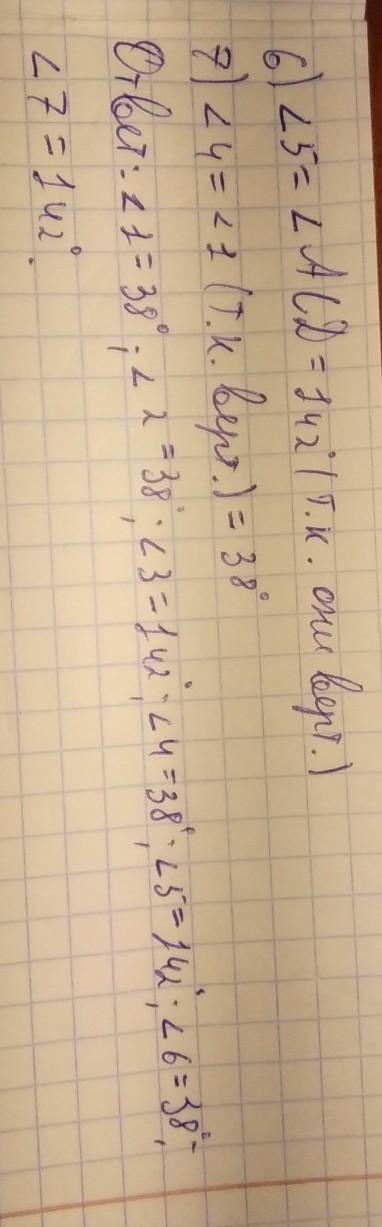 6) ∠5 = ∠ACD = 142° (т.к. они верт.)
7) ∠4 = ∠1 (т.к. верт.) = 38°
Ответ: ∠1 = 38°; ∠2 = 38°; ∠3 = 142°; ∠4 = 38°; ∠5 = 142°; ∠6 = 38°;
∠7 = 142°.